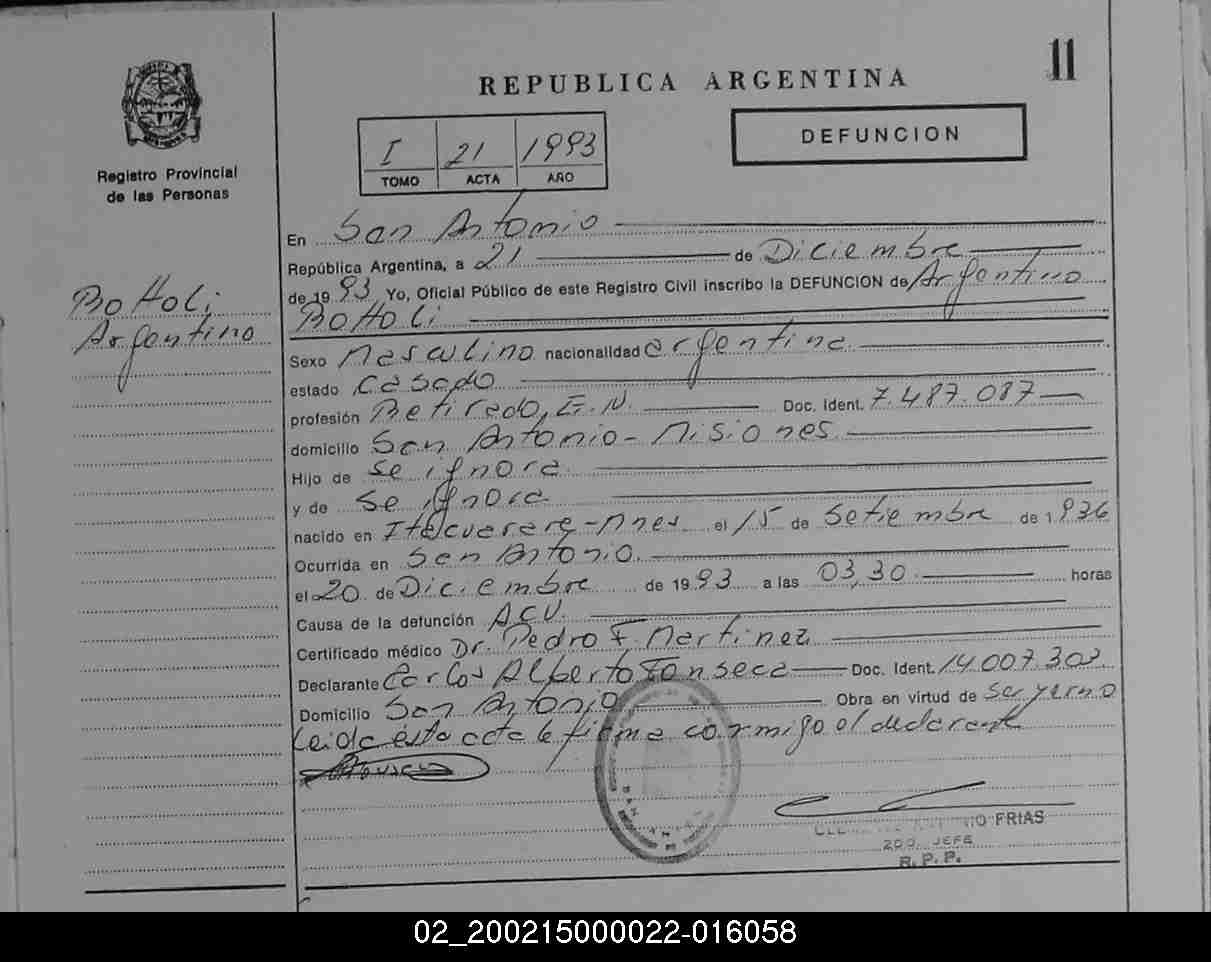 11
REPUBLICA ARGENTINA
DEFUNCION
I 21 1993
TOMO ACTA AÑO
Registro Provincial
de las Personas
Bottoli
Argentino
En San Antonio
República Argentina, a 21 de Diciembre
de 1993 Yo, Oficial Público de este Registro Civil inscribo la DEFUNCION de Argentino
Bottoli
Sexo Masculino nacionalidad argentina
estado Casado
profesión Retirado, E.N. Doc. Ident. 7.487.087
domicilio San Antonio - Misiones
Hijo de se ignora
y de se ignora
nacido en el 15 de Setiembre de 1936
Ocurrida en San Antonio
el 20 de Diciembre de 1993 a las 03,30 horas
Causa de la defunción ACV.
Certificado médico Dr. Pedro F. Martinez
Declarante Carlos Alberto Fonseca Doc. Ident. 14.007.303
Domicilio San Antonio Obra en virtud de ser yerno
Leida ésta acta la firma conmigo el declarante
FRIAS
JEFE
R. P. P.
02_200215000022-016058